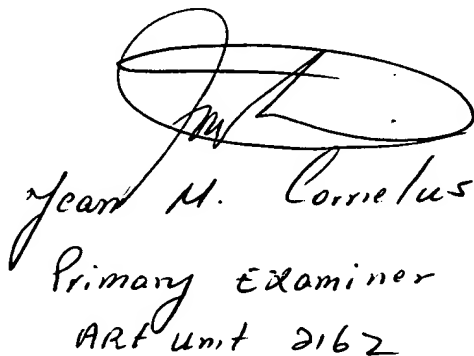 Jean M. Corrielus
Primary Examiner
ARt unit 2162